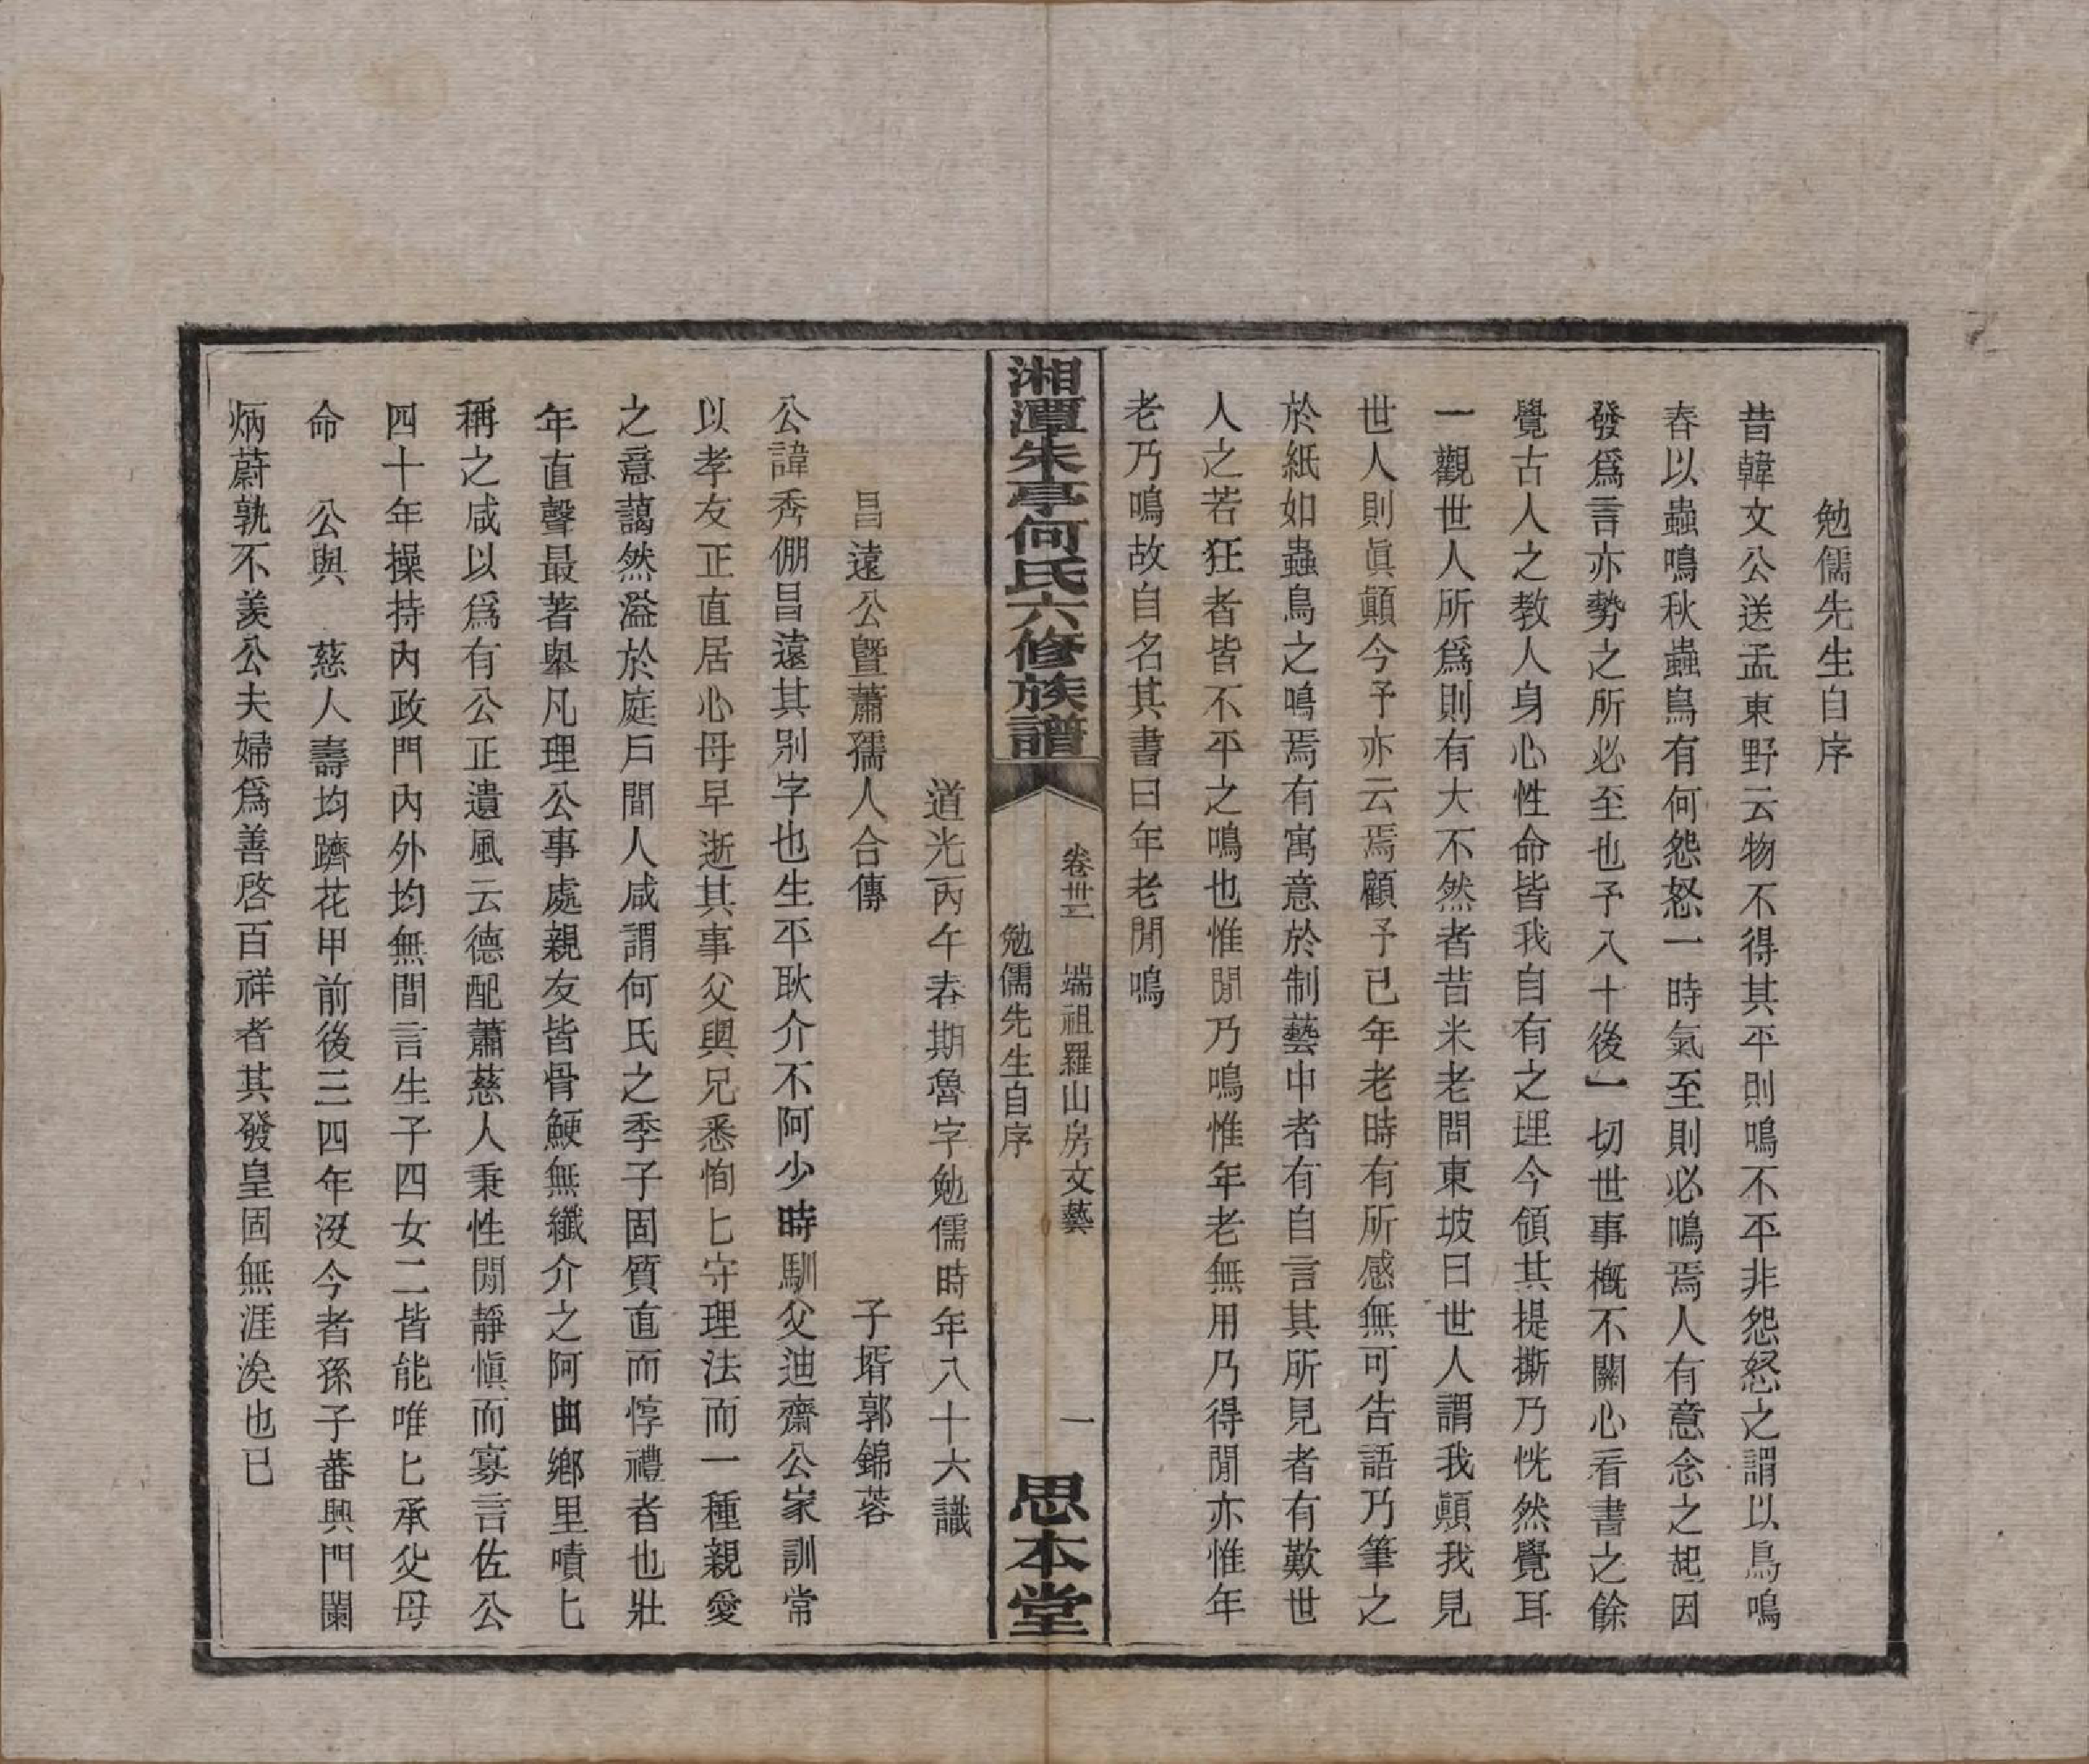 勉儒先生自序
昔韓文公送孟東野云物不得其平則鳴不平非怨怒之謂以鳥鳴
春以蟲鳴秋蟲鳥有何怨怒一時氣至則必鳴焉人有意念之起因
發爲言亦勢之所必至也予入十後一切世事槪不關心看書之餘
覺古人之敎人身心性命皆我自有之理今領其提撕乃恍然覺耳
一觀世人所爲則有大不然者昔米老問東坡曰世人謂我顚我見
世人則眞顚今予亦云焉顧予已年老時有所感無可告語乃筆之
於紙如蟲鳥之鳴焉有寓意於制藝中者有自言其所見者有歎世
人之若狂者皆不平之鳴也惟閒乃鳴惟年老無用乃得閒亦惟年
老乃鳴故自名其書曰年老閒鳴
湘潭朱亭何氏六修族譜
卷卅二　端祖羅山房文藝
勉儒先生自序
一
思本堂
道光丙午春期魯字勉儒時年八十六識
昌遠公曁蕭孺人合傳
子壻郭錦蓉
公諱秀倗昌遠其別字也生平耿介不阿少時馴父迪齋公家訓常
以孝友正直居心母早逝其事父與兄悉恂匕守理法而一種親愛
之意藹然溢於庭戶間人咸謂何氏之季子固質直而惇禮者也壯
年直聲最著舉凡理公事處親友皆骨鯁無纖介之阿曲鄕里噴匕
稱之咸以爲有公正遺風云德配蕭慈人秉性閒靜愼而寡言佐公
四十年操持內政門內外均無間言生子四女二皆能唯匕承父母
命　公與　慈人壽均躋花甲前後三四年沒今者孫子蕃興門闌
炳蔚孰不羨公夫婦爲善啓百祥者其發皇固無涯涘也已